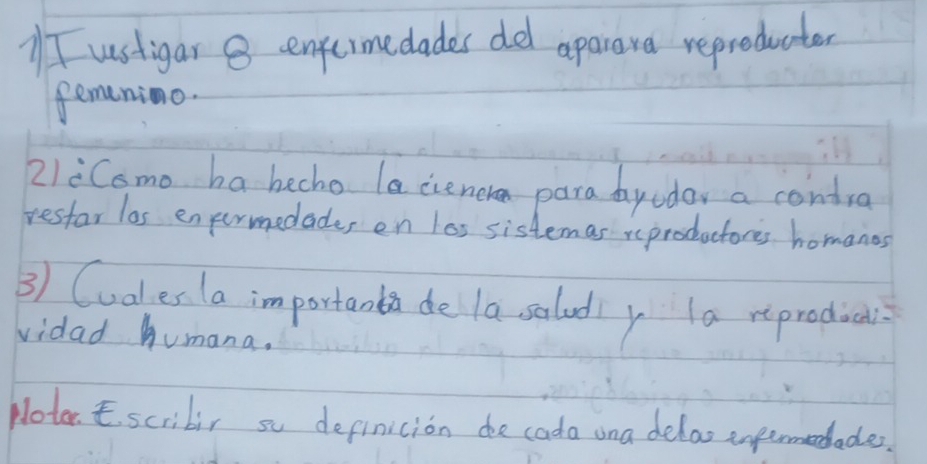 1) Ivestigar 8 enfermedades del aparara reproductor
femenino.
2) ¿Como ha hecho la ciencia para ayudar a contra
restar las enfermedades en los sistemas reproductores homanos
3) Cual es la importancia de la salud y la reproducti-
vidad humana.
Nota. Escribir su definición de cada una delas enfermedades.